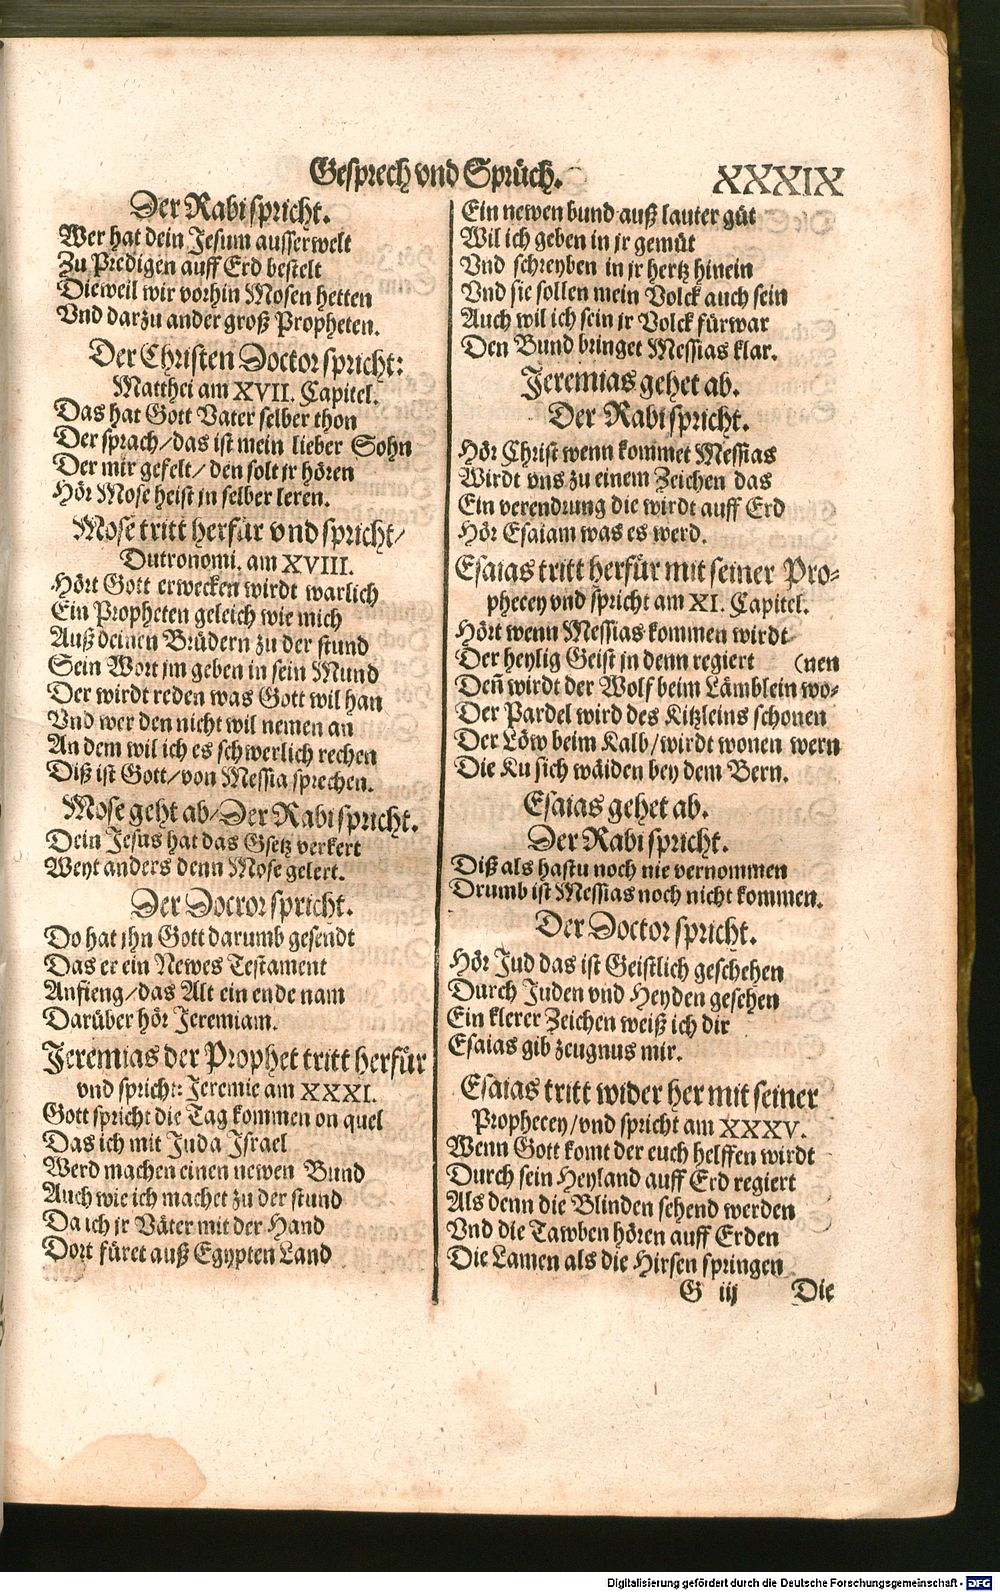 Gesprech vnd Sprüch.
XXXIX
Der Rabi spricht.
Wer hat dein Jesum ausserwelt
Zu Predigen auff Erd bestelt
Dieweil wir vorhin Mosen hetten
Vnd darzu ander groß Propheten.
Der Christen Doctor spricht:
Matthei am XVII. Capitel.
Das hat Gott Vater selber thon
Der sprach/das ist mein lieber Sohn
Der mir gefelt/den solt jr hören
Hör Mose heist jn selber leren.
Mose tritt herfür vnd spricht/
Dutronomi. am XVIII.
Hört Gott erwecken wirdt warlich
Ein Propheten geleich wie mich
Auß deinen Brüdern zu der stund
Sein Wort jm geben in sein Mund
Der wirdt reden was Gott wil han
Vnd wer den nicht wil nemen an
An dem wil ich es schwerlich rechen
Diß ist Gott/von Messia sprechen.
Mose geht ab/Der Rabi spricht.
Dein Jesus hat das Gsetz verkert
Weyt anders denn Mose gelert.
Der Docror spricht.
Do hat jhn Gott darumb gesendt
Das er ein Newes Testament
Anfieng/das Alt ein ende nam
Darüber hör Jeremiam.
Jeremias der Prophet tritt herfür
vnd spricht: Jeremie am XXXI.
Gott spricht die Tag kommen on quel
Das ich mit Juda Israel
Werd machen einen newen Bund
Auch wie ich machet zu der stund
Da ich jr Väter mit der Hand
Dort füret auß Egypten Land
Ein newen bund auß lauter güt
Wil ich geben in jr gemüt
Vnd schreyben in jr hertz hinein
Vnd sie sollen mein Volck auch sein
Auch wil ich sein jr Volck fürwar
Den Bund bringet Messias klar.
Jeremias gehet ab.
Der Rabi spricht.
Hör Christ wenn kommet Messias
Wirdt vns zu einem Zeichen das
Ein verendrung die wirdt auff Erd
Hör Esaiam was es werd.
Esaias tritt herfür mit seiner Pro-
phecey vnd spricht am XI. Capitel.
Hört wenn Messias kommen wirdt
Der heylig Geist jn denn regiert (nen
Deñ wirdt der Wolf beim Lämblein wo-
Der Pardel wird des Kitzleins schonen
Der Löw beim Kalb/wirdt wonen wern
Die Ku sich wäiden bey dem Bern.
Esaias gehet ab.
Der Rabi spricht.
Diß als hastu noch nie vernommen
Drumb ist Messias noch nicht kommen.
Der Doctor spricht.
Hör Jud das ist Geistlich geschehen
Durch Juden vnd Heyden gesehen
Ein klerer Zeichen weiß ich dir
Esaias gib zeugnus mir.
Esaias tritt wider her mit seiner
Prophecey/vnd spricht am XXXV.
Wenn Gott komt der euch helffen wirdt
Durch sein Heyland auff Erd regiert
Als denn die Blinden sehend werden
Vnd die Tawben hören auff Erden
Die Lamen als die Hirsen springen
G iij Die
Digitalisierung gefördert durch die Deutsche Forschungsgemeinschaft - DFG